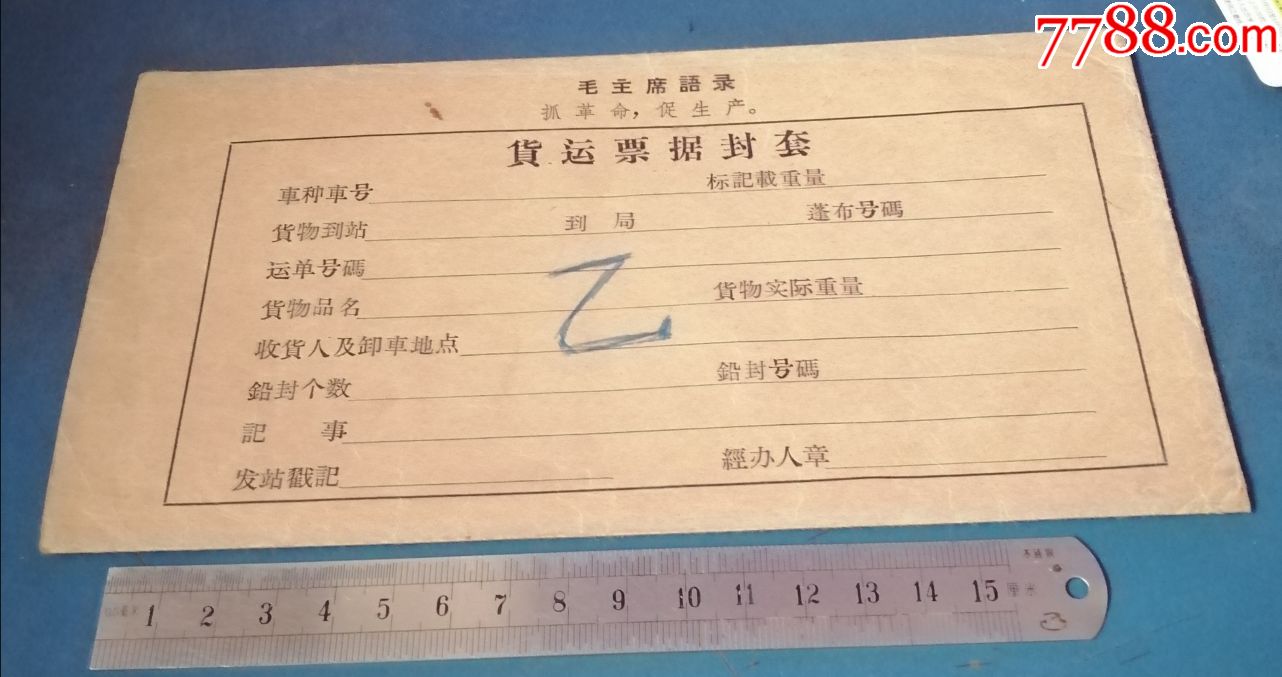 7788.com
毛主席語录
抓革命，促生产。
貨运票据封套
車种車号 标記載重量
貨物到站 到局 蓬布号碼
运单号碼
貨物品名 貨物实际重量
收貨人及卸車地点
鉛封个数 鉛封号碼
記事
发站戳記 經办人章
乙
1 2 3 4 5 6 7 8 9 10 11 12 13 14 15 厘米